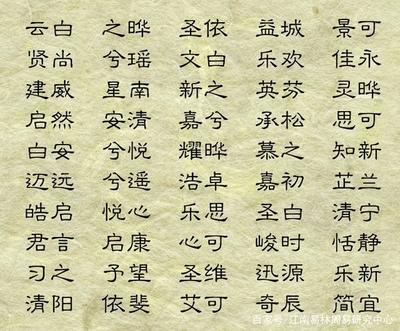 云白 之晔 圣依 益城 景可
贤尚 兮瑶 文白 乐欢 佳永
建威 星南 新之 英芬 灵晔
启然 安清 嘉兮 承松 思可
白安 兮悦 耀晔 慕之 知新
迈远 兮遥 浩卓 嘉初 芷兰
皓启 悦心 乐思 圣白 清宁
君言 启康 心可 峻时 恬静
习之 予望 圣维 迅源 乐新
清阳 依斐 艾可 奇辰 简宜
百家号/江南易林周易研究中心